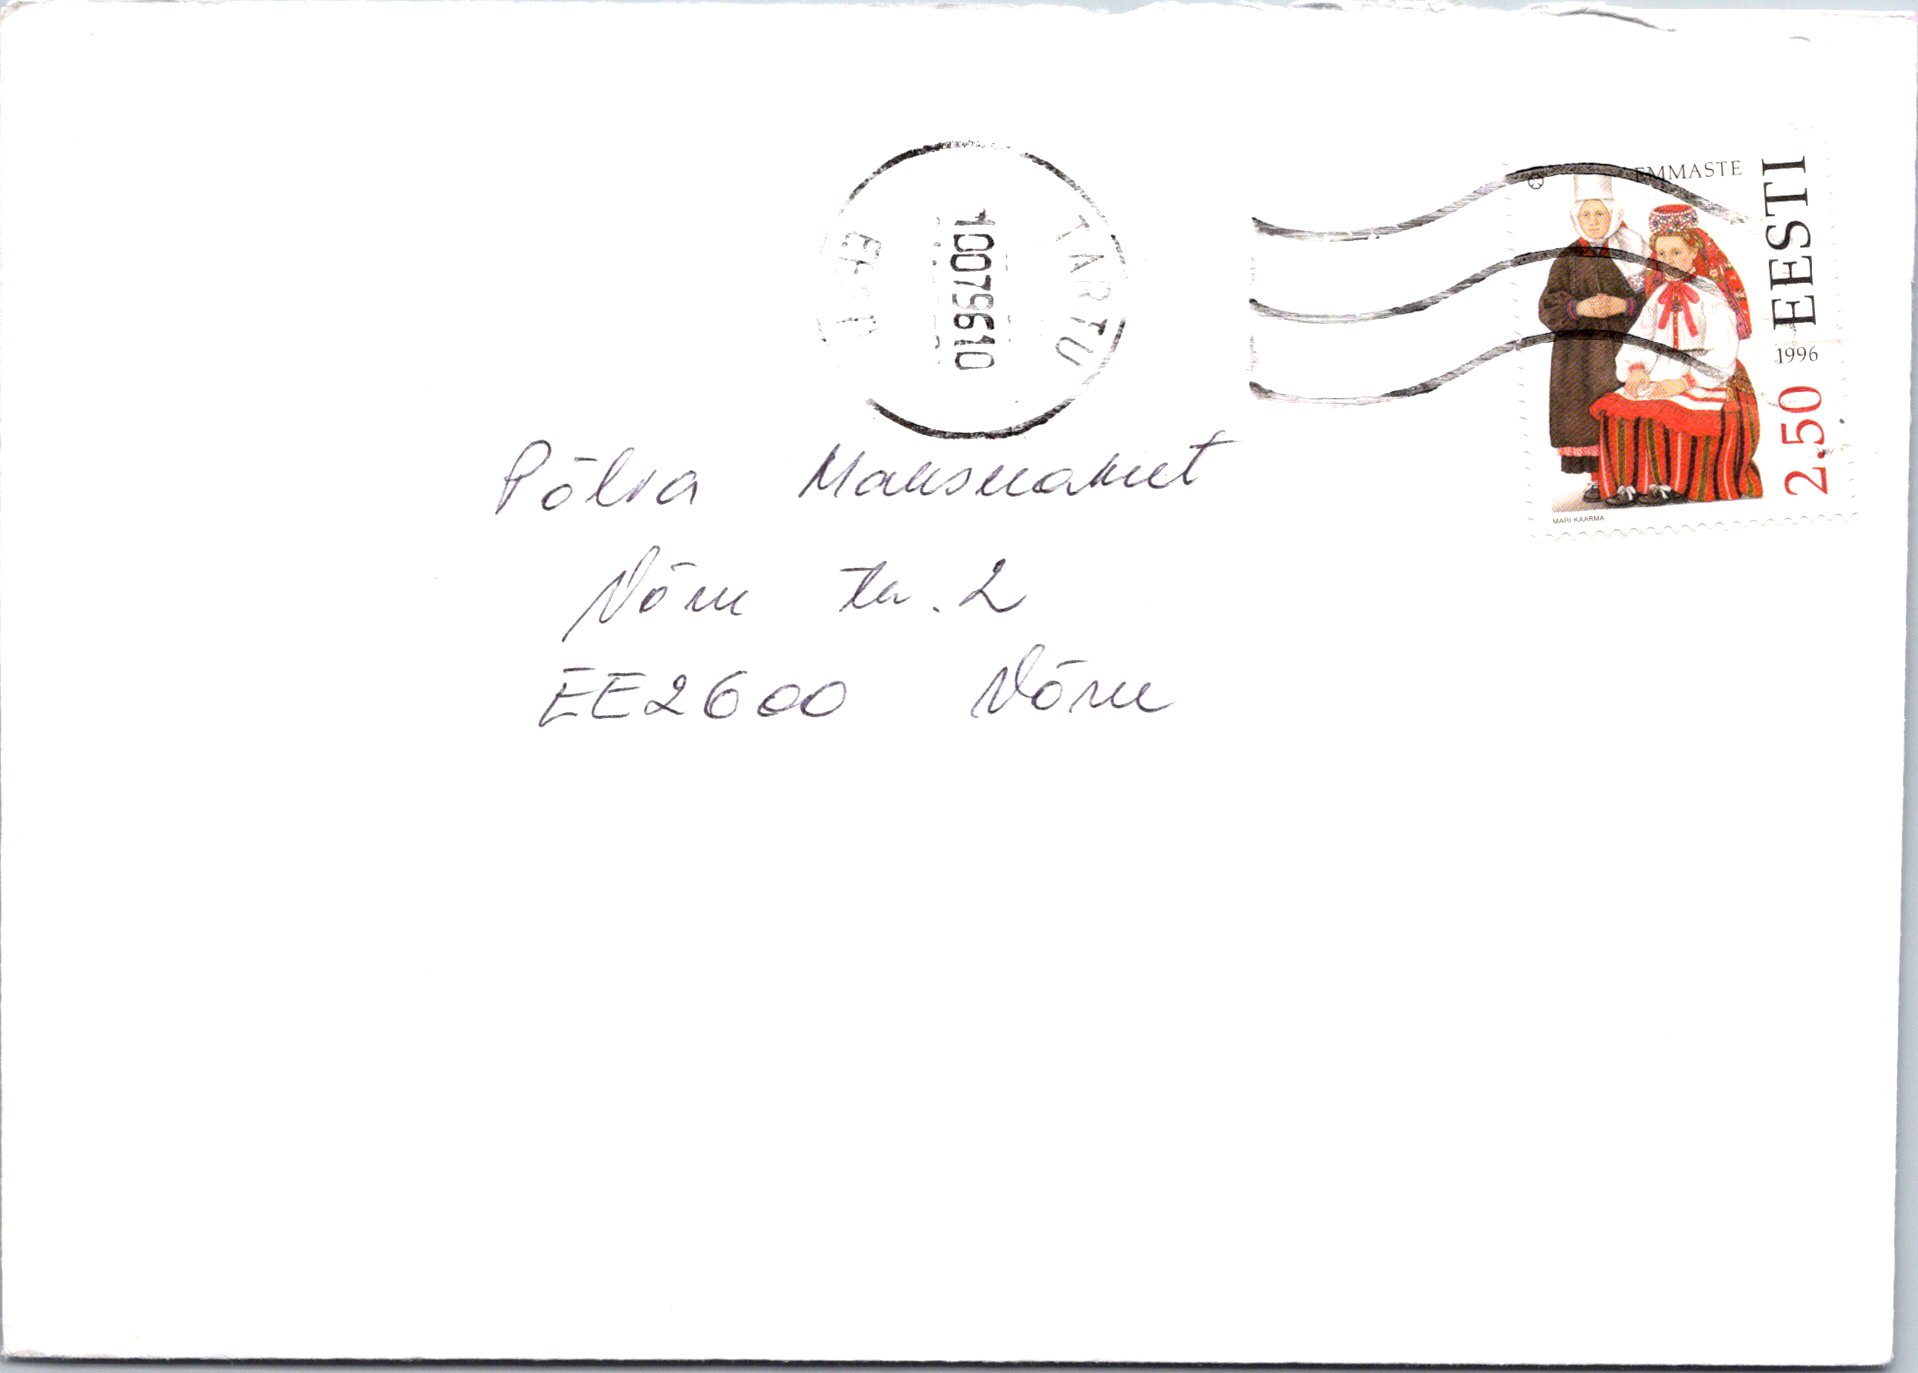 TARTU
10079610
EESTI
EMMASTE
EESTI
1996
2.50
MARI KAARMA
Põlva Maksuamet
Võru tn. 2
EE2600 Võru